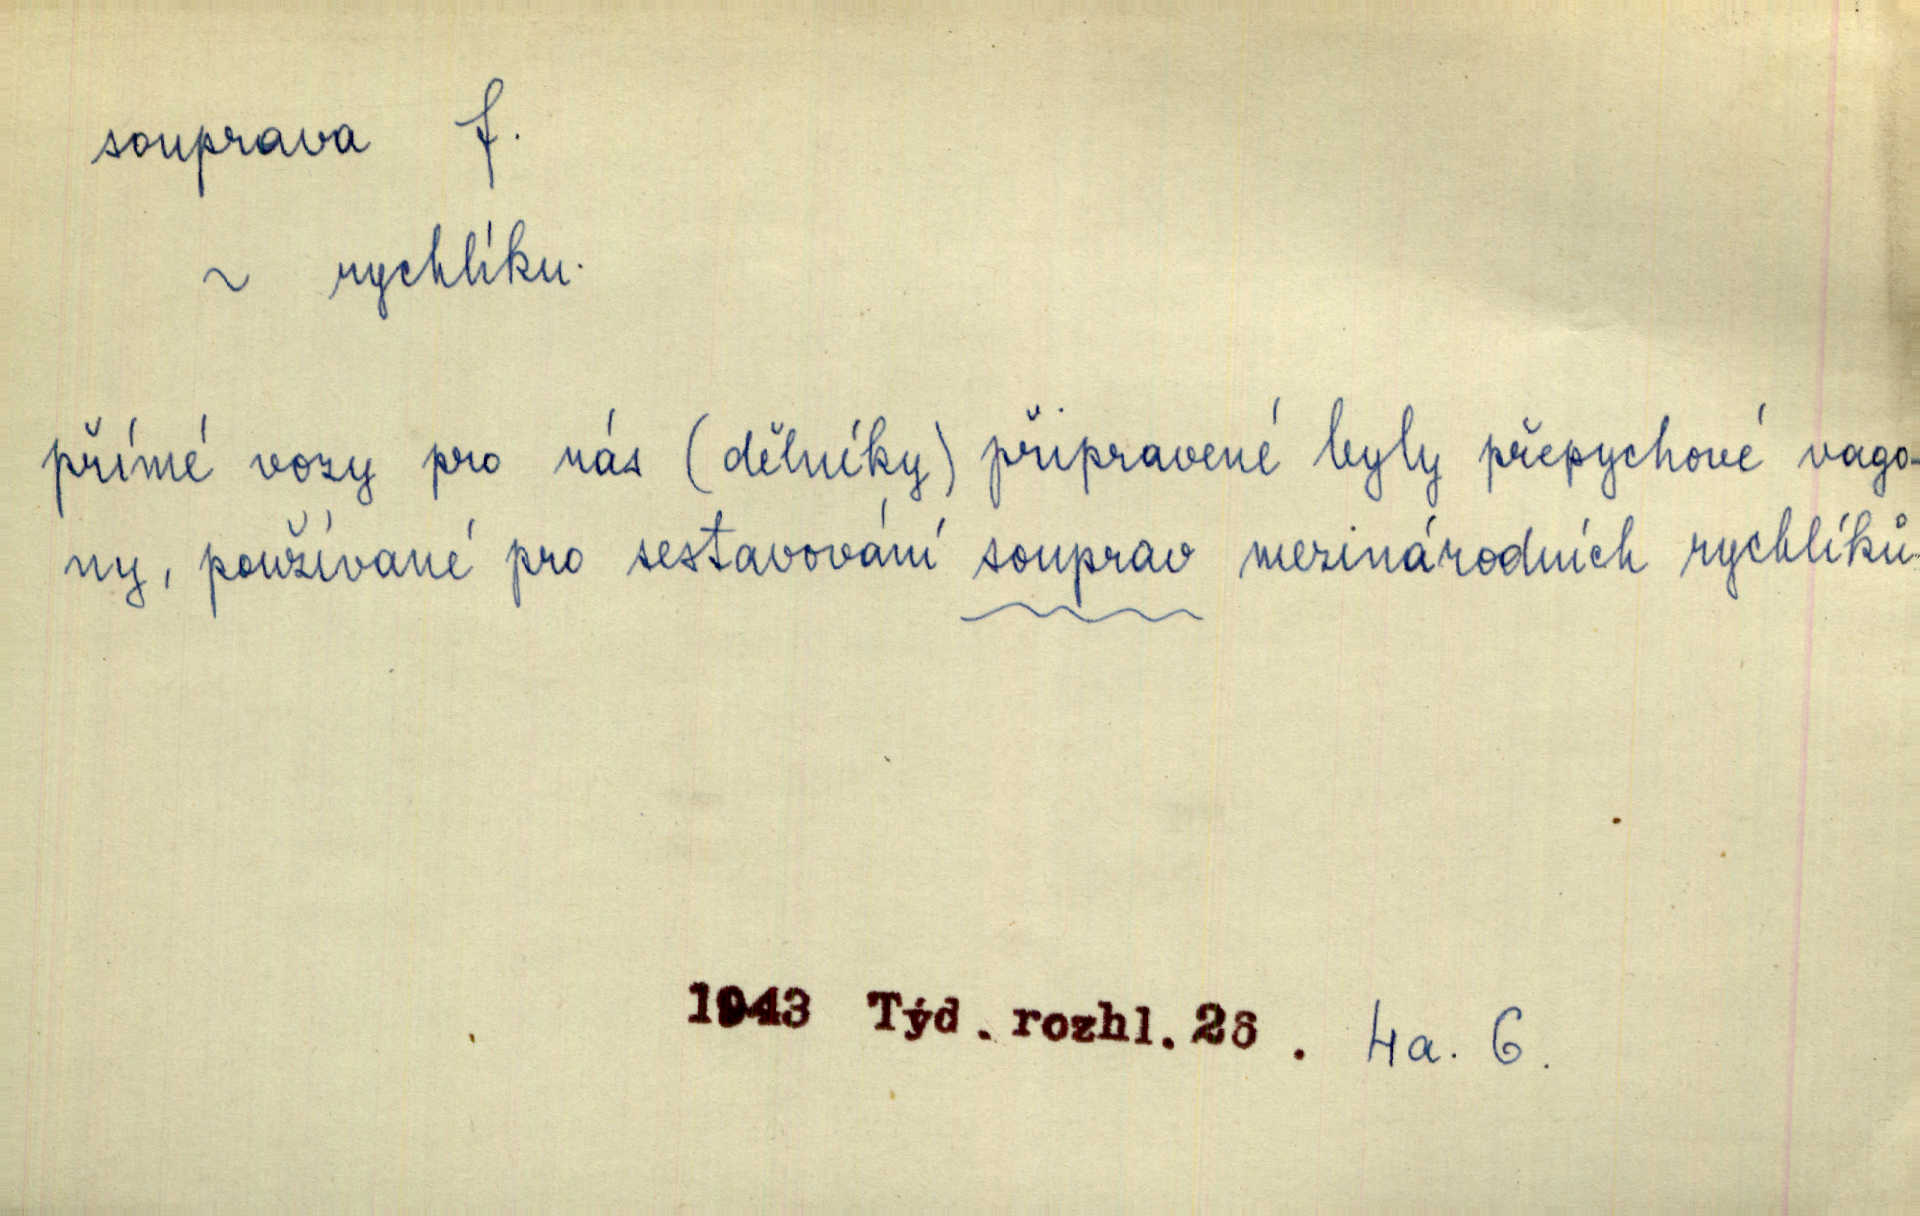 souprava f.
~ rychlíku.
přímé vozy pro nás (dělníky) připravené byly přepychové vago-
ny, používané pro sestavování souprav mezinárodních rychlíků.
1943 Týd. rozhl. 26. 4a. 6.